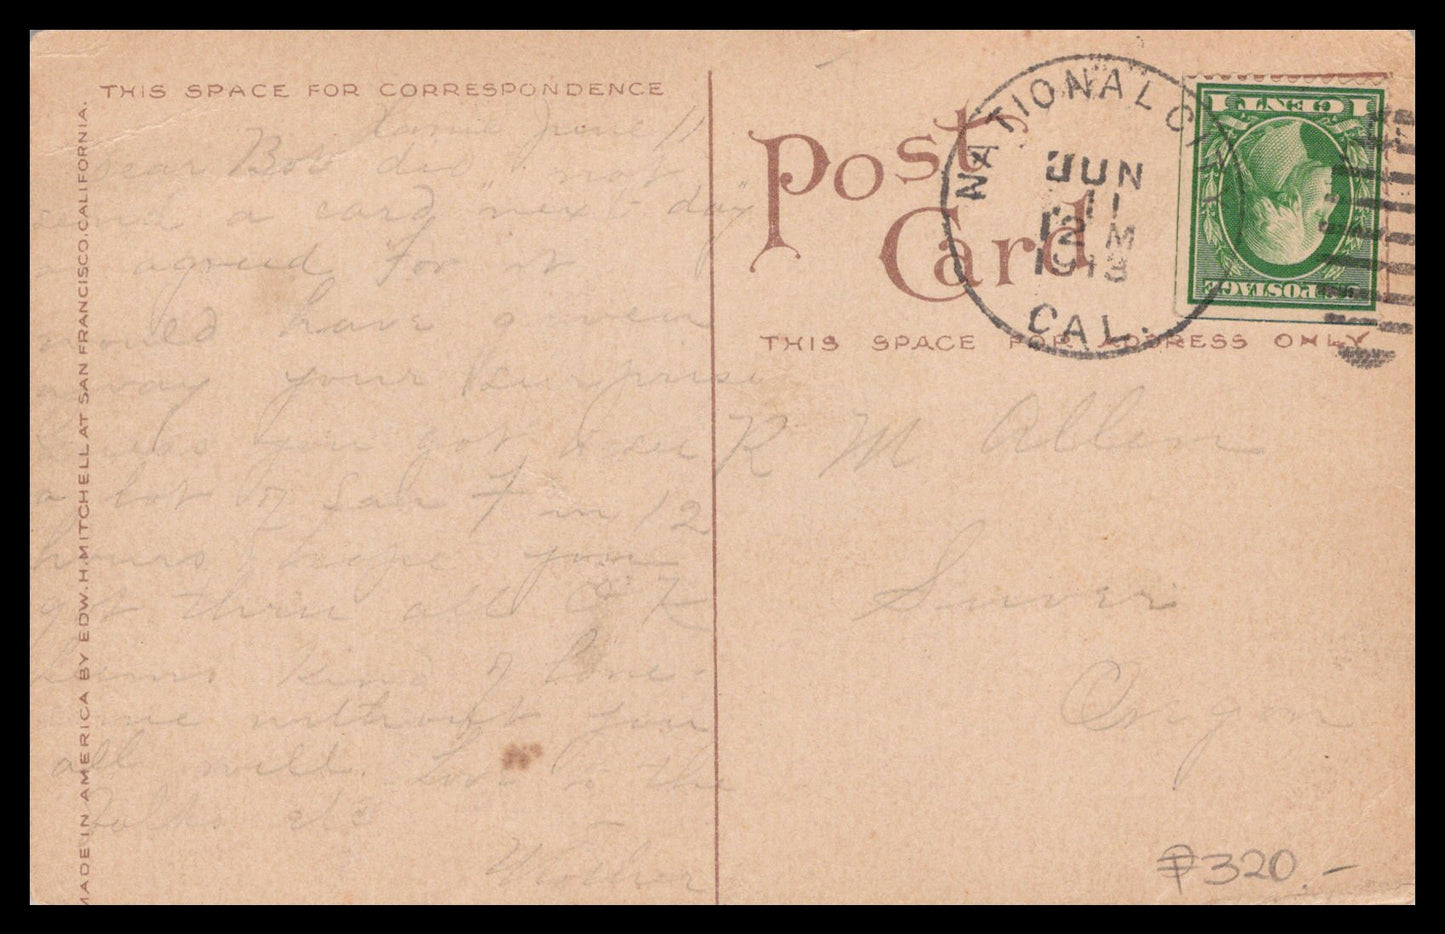 THIS SPACE FOR CORRESPONDENCE
Home June 11
Dear Bob did not
send a card "next day"
as agreed for it
would have given
away your surprise
Guess you got to see
a lot of San F in 12
hours I hope you
got thru all O K
Seems kind of lone-
some without you
all well. Love to the
folks etc
Mother
MADE IN AMERICA BY EDW. H. MITCHELL AT SAN FRANCISCO, CALIFORNIA.
Post
Card
NATIONAL CITY
JUN
11
12 M
1913
CAL.
1 CENT 1
U.S. POSTAGE
THIS SPACE FOR ADDRESS ONLY
R M Allen
Suver
Oregon
₱320.-